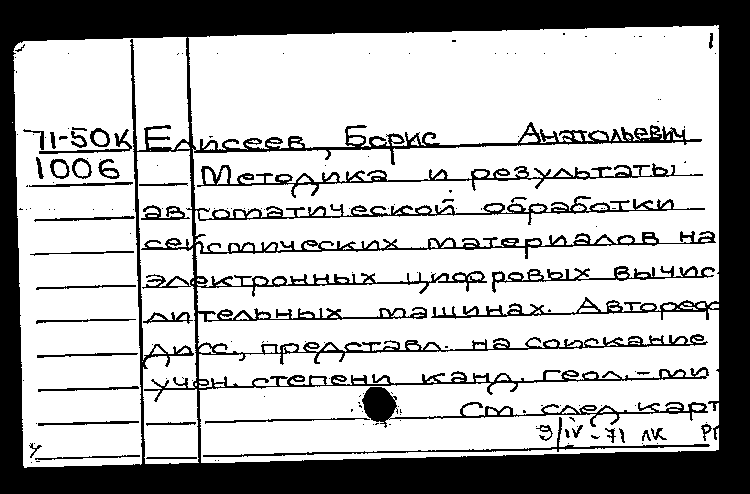 1
71-50К Елисеев, Борис Анатольевич
1006 Методика и результаты
автоматической обработки
сейсмических материалов на
электронных цифровых вычис-
лительных машинах. Автореф
дисс., представл. на соискание
учен. степени канд. геол.-ми
См. след. карт
9/IV-71 ЛК РГ